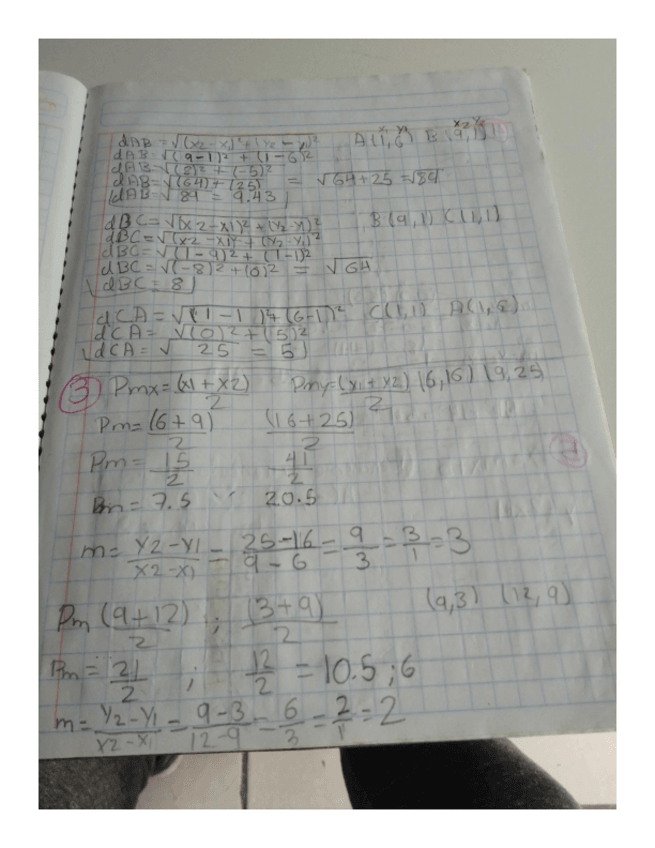 dAB = √(x2 - x)² + (y2 - y1)² A(1,6) B(9,1)
dAB = √(9-1)² + (1-6)²
dAB = √(8)² + (-5)²
dAB = √(64) + (25) = √64+25 = √89
dAB = √89 = 9.43
dBC = √(x2 - x1)² + (y2 - y1)² B(9,1) C(1,1)
dBC = √(x2 - x1)² + (y2 - y1)²
dBC = √(1-9)² + (1-1)²
dBC = √(-8)² + (0)² = √64
dBC = 8
dCA = √(1-1)² + (6-1)² C(1,1) A(1,6)
dCA = √(0)² + (5)²
dCA = √25 = 5
3 Pmx = (x1 + x2)/2 Pmy = (y1 + x2)/2 (6,16) (9,25
Pm = (6+9)/2 (16+25)/2
Pm = 15/2 41/2
Pm = 7.5 20.5
m = y2-y1/x2-x1 = 25-16/9-6 = 9/3 = 3/1 = 3
Pm (9+12)/2 ; (3+9)/2 (9,3) (12,9)
Pm = 21/2 ; 12/2 = 10.5 ; 6
m = y2-y1/x2-x1 = 9-3/12-9 = 6/3 = 2/1 = 2